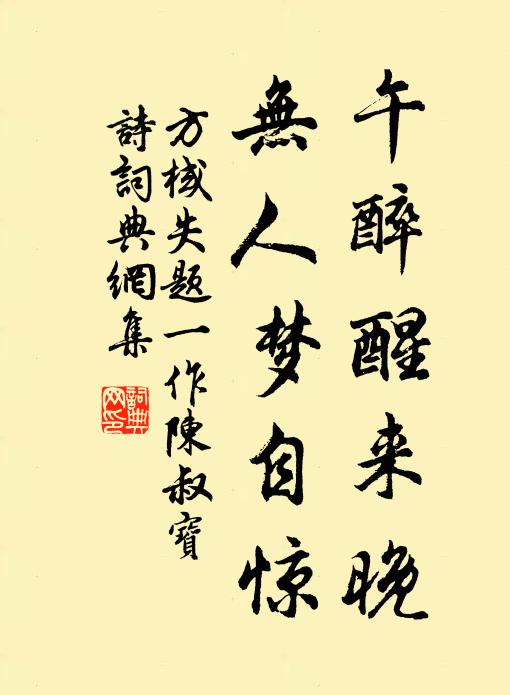 午醉醒来晚
無人梦自惊
方棫失题一作陳叔寶
詩詞典網集
詞典
网印